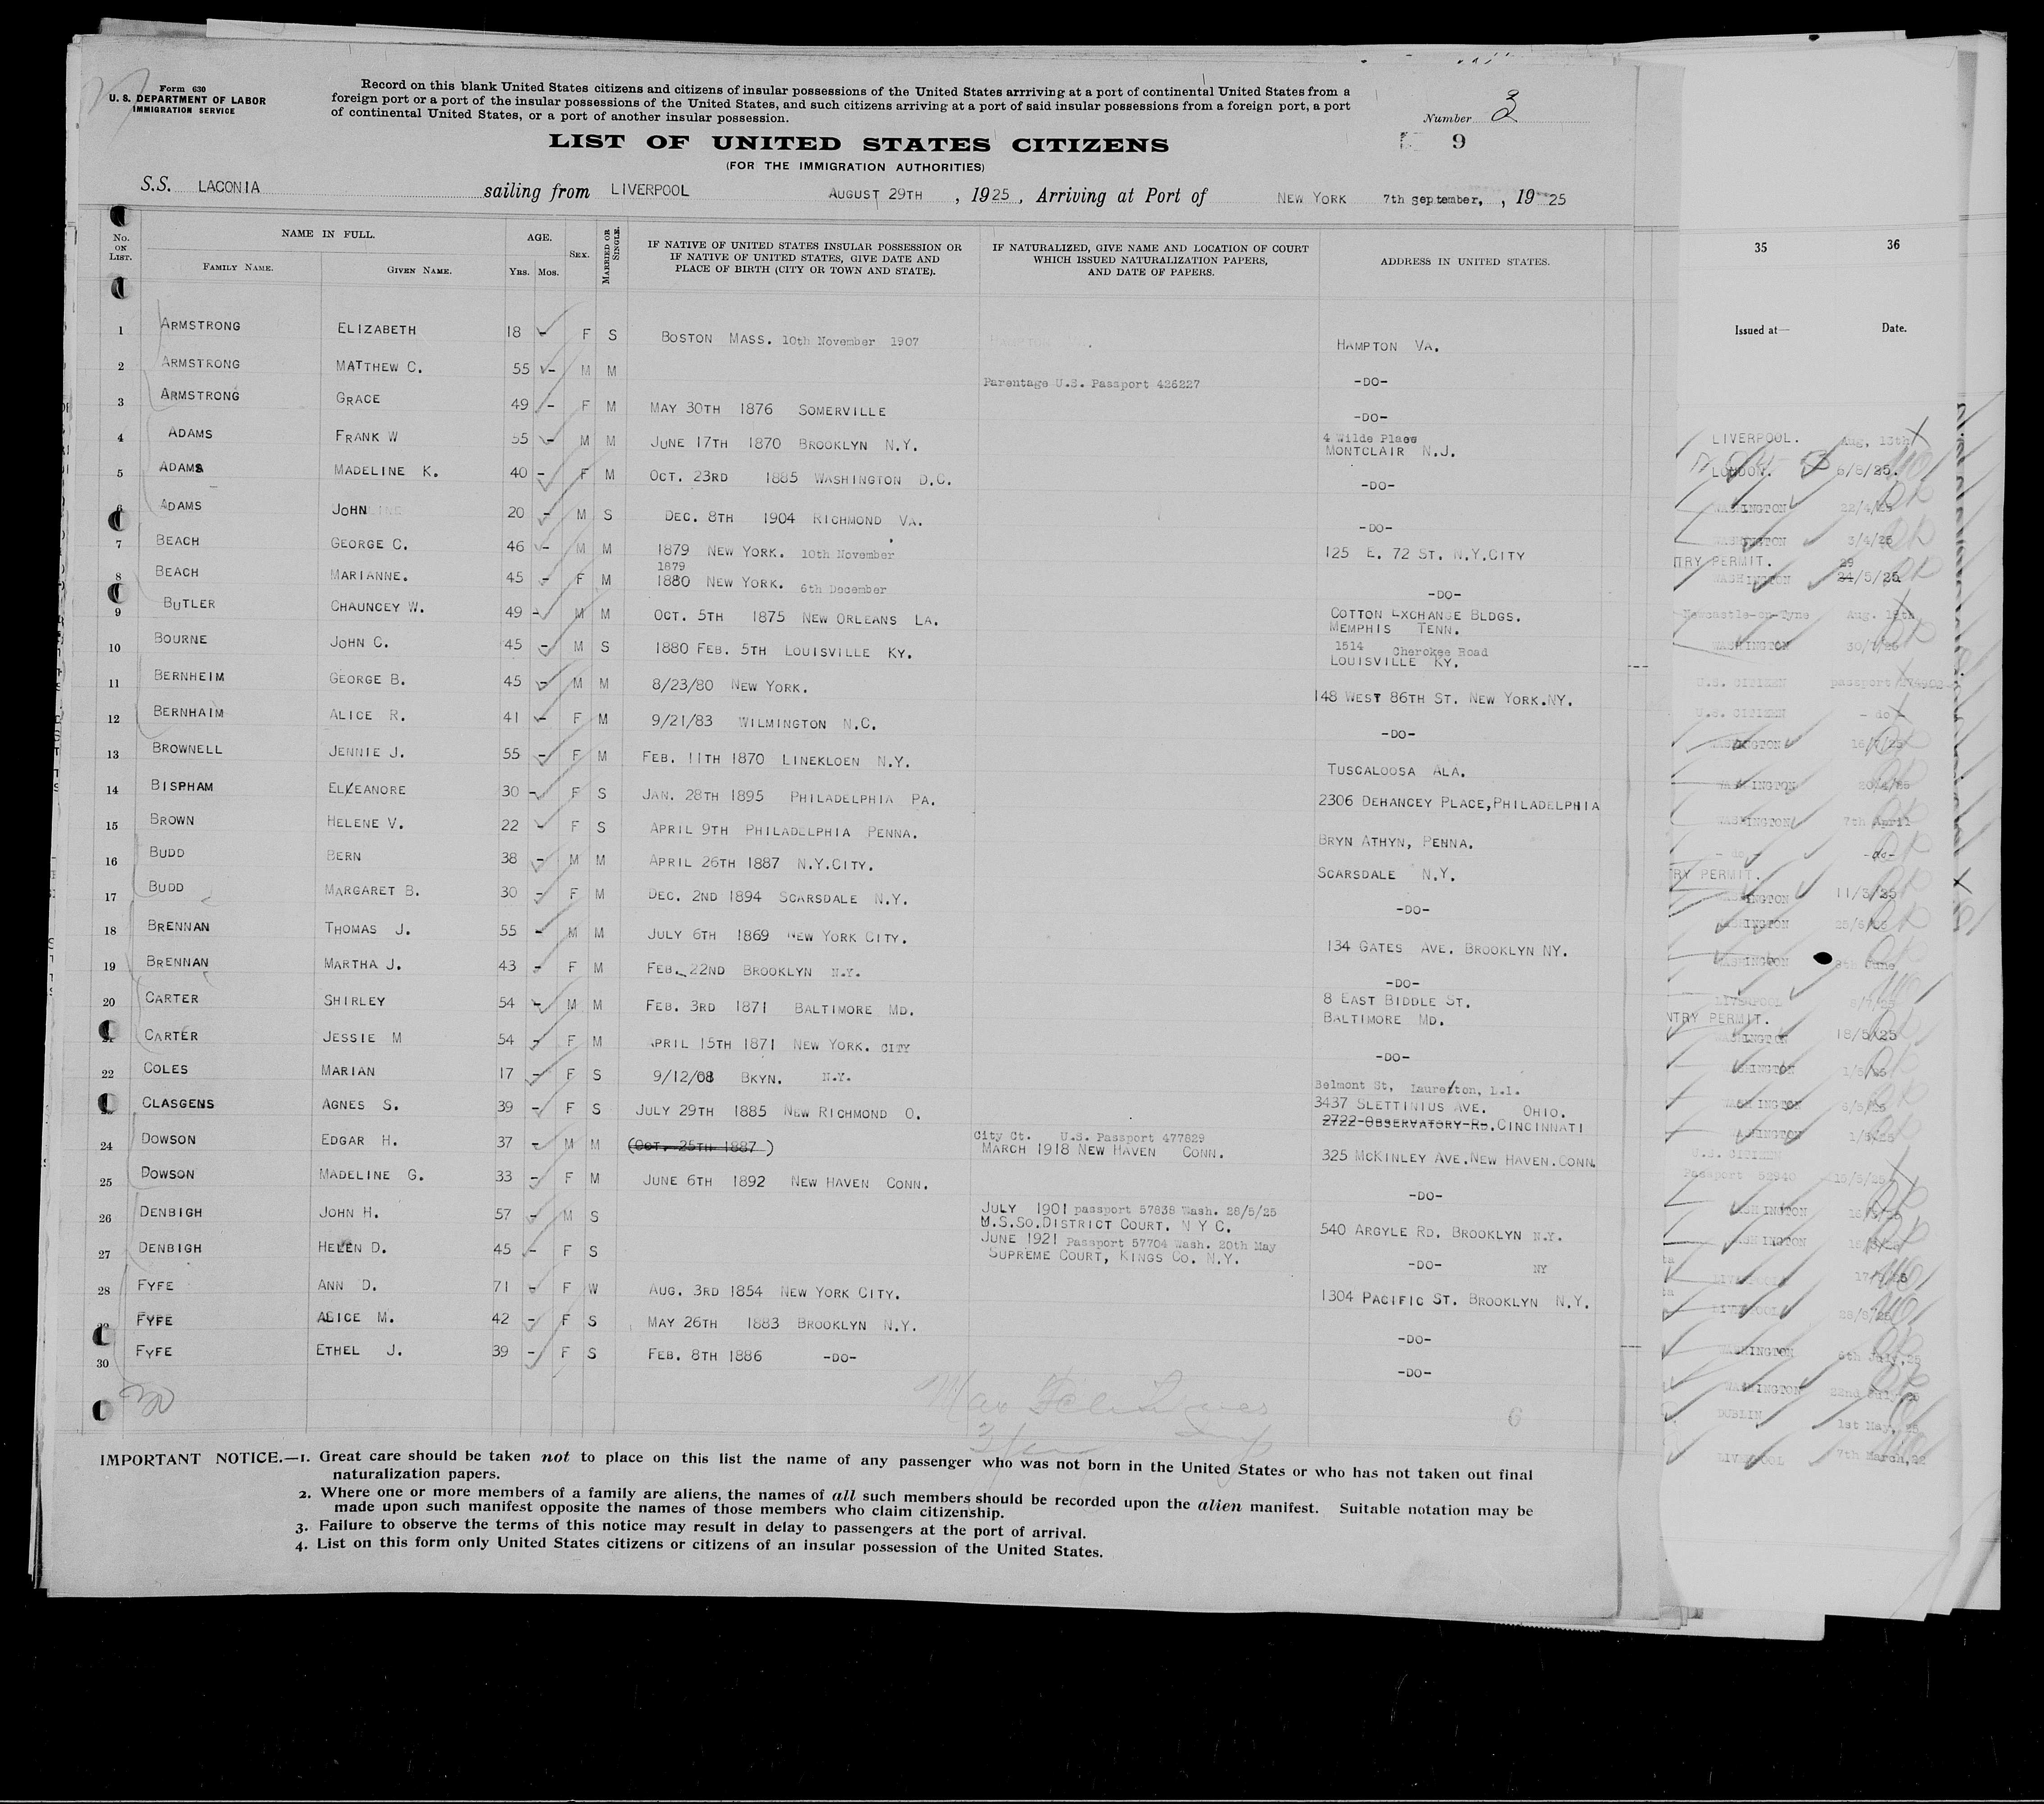 Form 630
U. S. DEPARTMENT OF LABOR
IMMIGRATION SERVICE
Record on this blank United States citizens and citizens of insular possessions of the United States arrriving at a port of continental United States from a
foreign port or a port of the insular possessions of the United States, and such citizens arriving at a port of said insular possessions from a foreign port, a port
of continental United States, or a port of another insular possession.
Number 3
9
LIST OF UNITED STATES CITIZENS
(FOR THE IMMIGRATION AUTHORITIES)
S.S. LACONIA sailing from LIVERPOOL AUGUST 29TH , 1925 , Arriving at Port of NEW YORK 7th september, , 19 25
No. ON LIST. NAME IN FULL. FAMILY NAME. GIVEN NAME. AGE. YRS. MOS. SEX. MARRIED OR SINGLE. IF NATIVE OF UNITED STATES INSULAR POSSESSION OR IF NATIVE OF UNITED STATES, GIVE DATE AND PLACE OF BIRTH (CITY OR TOWN AND STATE). IF NATURALIZED, GIVE NAME AND LOCATION OF COURT WHICH ISSUED NATURALIZATION PAPERS, AND DATE OF PAPERS. ADDRESS IN UNITED STATES.
1 ARMSTRONG ELIZABETH 18 - F S BOSTON MASS. 10th November 1907 HAMPTON VA.
2 ARMSTRONG MATTHEW C. 55 - M M Parentage U.S. Passport 426227 -DO-
3 ARMSTRONG GRACE 49 - F M MAY 30TH 1876 SOMERVILLE -DO-
4 ADAMS FRANK W 55 - M M JUNE 17TH 1870 BROOKLYN N.Y. 4 Wilde Place MONTCLAIR N.J.
5 ADAMS MADELINE K. 40 - F M OCT. 23RD 1885 WASHINGTON D.C. -DO-
6 ADAMS JOHN 20 - M S DEC. 8TH 1904 RICHMOND VA. -DO-
7 BEACH GEORGE C. 46 - M M 1879 NEW YORK. 10th November 125 E. 72 ST. N.Y.CITY
8 BEACH MARIANNE. 45 - F M 1879 1880 NEW YORK. 6th December -DO-
9 BUTLER CHAUNCEY W. 49 - M M OCT. 5TH 1875 NEW ORLEANS LA. COTTON EXCHANGE BLDGS. MEMPHIS TENN.
10 BOURNE JOHN C. 45 - M S 1880 FEB. 5TH LOUISVILLE KY. 1514 Cherokee Road LOUISVILLE KY.
11 BERNHEIM GEORGE B. 45 - M M 8/23/80 NEW YORK. 148 WEST 86TH ST. NEW YORK.NY.
12 BERNHAIM ALICE R. 41 - F M 9/21/83 WILMINGTON N.C. -DO-
13 BROWNELL JENNIE J. 55 - F M FEB. 11TH 1870 LINEKLOEN N.Y. TUSCALOOSA ALA.
14 BISPHAM ELLEANORE 30 - F S JAN. 28TH 1895 PHILADELPHIA PA. 2306 DEHANCEY PLACE,PHILADELPHIA
15 BROWN HELENE V. 22 - F S APRIL 9TH PHILADELPHIA PENNA. BRYN ATHYN, PENNA.
16 BUDD BERN 38 - M M APRIL 26TH 1887 N.Y.CITY. SCARSDALE N.Y.
17 BUDD MARGARET B. 30 - F M DEC. 2ND 1894 SCARSDALE N.Y. -DO-
18 BRENNAN THOMAS J. 55 - M M JULY 6TH 1869 NEW YORK CITY. 134 GATES AVE. BROOKLYN NY.
19 BRENNAN MARTHA J. 43 - F M FEB. 22ND BROOKLYN N.Y. -DO-
20 CARTER SHIRLEY 54 - M M FEB. 3RD 1871 BALTIMORE MD. 8 EAST BIDDLE ST. BALTIMORE MD.
CARTER JESSIE M 54 - F M APRIL 15TH 1871 NEW YORK. CITY -DO-
22 COLES MARIAN 17 - F S 9/12/08 BKYN. N.Y. Belmont St, Laurelton, L.I.
CLASGENS AGNES S. 39 - F S JULY 29TH 1885 NEW RICHMOND O. 3437 SLETTINIUS AVE. OHIO. 2722 OBSERVATORY RD.CINCINNATI
24 DOWSON EDGAR H. 37 - M M (OCT. 25TH 1887 ) City Ct. U.S. Passport 477829 MARCH 1918 NEW HAVEN CONN. 325 MCKINLEY AVE.NEW HAVEN.CONN.
25 DOWSON MADELINE G. 33 - F M JUNE 6TH 1892 NEW HAVEN CONN. -DO-
26 DENBIGH JOHN H. 57 - M S JULY 1901 passport 57838 Wash. 28/5/25 U.S.SO.DISTRICT COURT. N Y C. 540 ARGYLE RD. BROOKLYN N.Y.
27 DENBIGH HELEN D. 45 - F S JUNE 1921 Passport 57704 Wash. 20th May SUPREME COURT, KINGS CO. N.Y. -DO- NY
28 FYFE ANN D. 71 - F W AUG. 3RD 1854 NEW YORK CITY. 1304 PACIFIC ST. BROOKLYN N.Y.
FYFE ALICE M. 42 - F S MAY 26TH 1883 BROOKLYN N.Y. -DO-
30 FYFE ETHEL J. 39 - F S FEB. 8TH 1886 -DO- -DO-
30
6
IMPORTANT NOTICE.—1. Great care should be taken not to place on this list the name of any passenger who was not born in the United States or who has not taken out final
naturalization papers.
2. Where one or more members of a family are aliens, the names of all such members should be recorded upon the alien manifest. Suitable notation may be
made upon such manifest opposite the names of those members who claim citizenship.
3. Failure to observe the terms of this notice may result in delay to passengers at the port of arrival.
4. List on this form only United States citizens or citizens of an insular possession of the United States.
35 36
Issued at— Date.
LIVERPOOL. Aug, 13th
LONDON. 6/8/25.
WASHINGTON 22/4/25
WASHINGTON 3/4/25
TRY PERMIT. 29
WASHINGTON 24/5/25
Newcastle-on-Tyne Aug.
WASHINGTON
U.S. CITIZEN passport
U.S. CITIZEN - do -
WASHINGTON
WASHINGTON
WASHINGTON 7th April
- do - -do-
RY PERMIT.
WASHINGTON 11/3/25
WASHINGTON
WASHINGTON 8th June
LIVERPOOL
NTRY PERMIT.
WASHINGTON 18/5/25
WASHINGTON
WASHINGTON
WASHINGTON
U.S. CITIZEN
Passport 52940 15/5/25
WASHINGTON
WASHINGTON
LIVERPOOL
LIVERPOOL
WASHINGTON 6th July,25
WASHINGTON 22nd July
DUBLIN 1st May, 25
LIVERPOOL 7th March,22